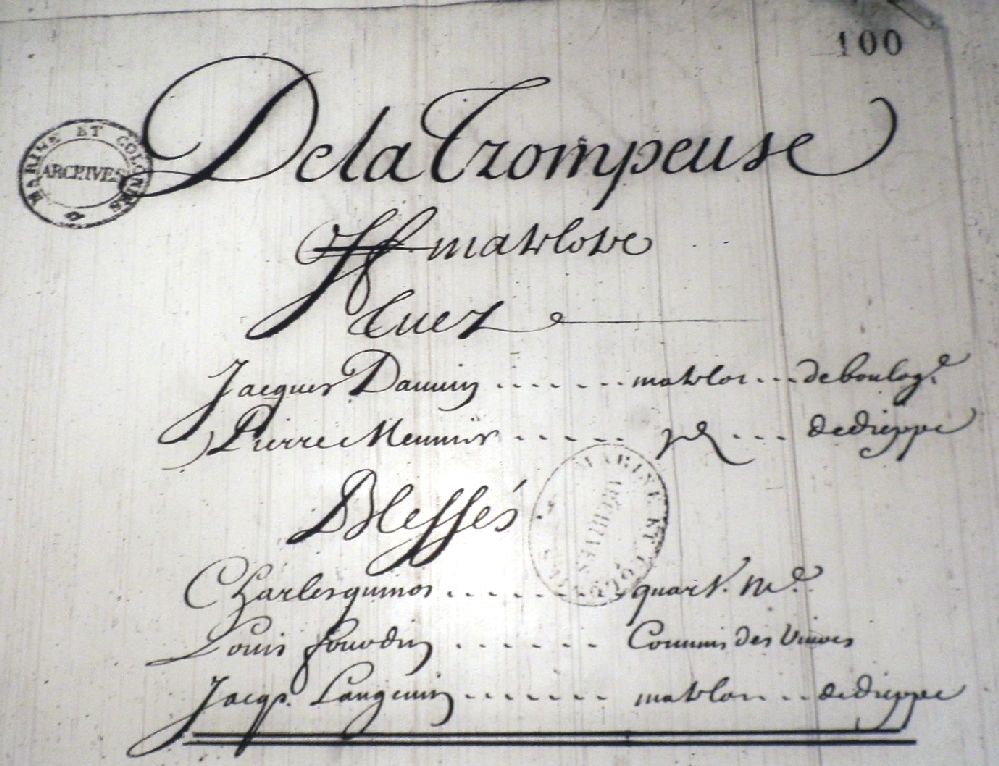 100
MARINE ET COLONIES
ARCHIVES
De la Trompeuse
matelots
Tuez
Jacques Daumin ...... matelot ... de boulog.e
Pierre Meunier ..... id ... de dieppe
Blessés
MARINE ET COLONIES
ARCHIVES
Charles quinot ...... quart. me.
Louis ...... Commis des Vivres
Jacqs. Langevin ...... matelot .. de dieppe